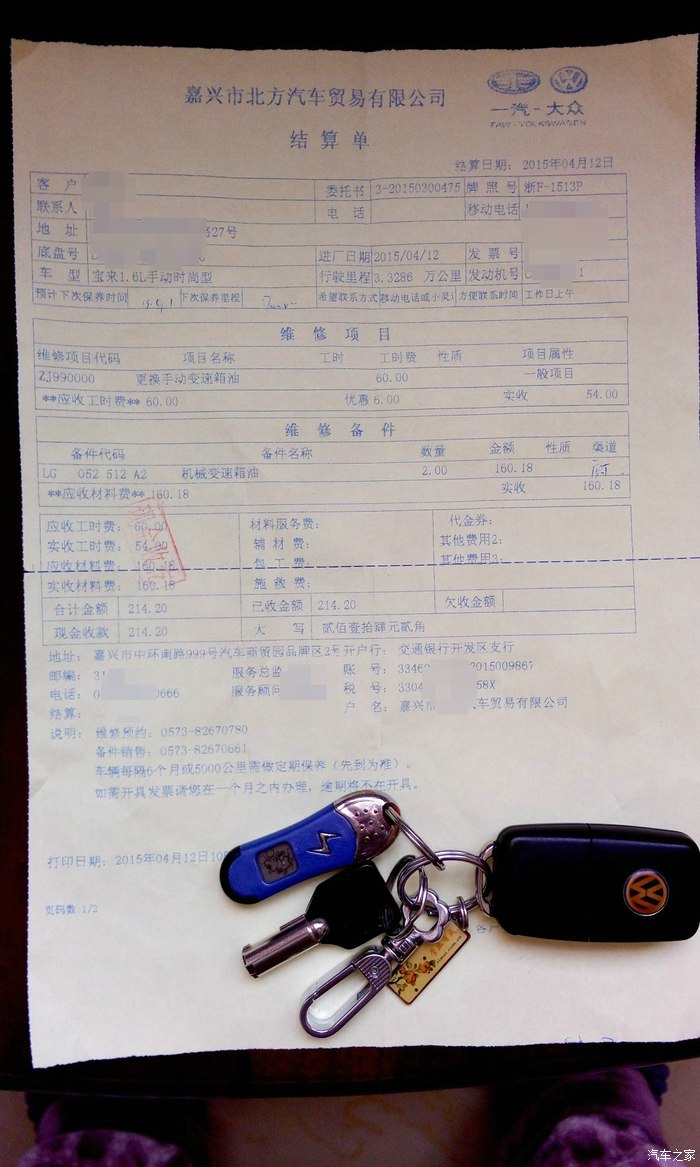 嘉兴市北方汽车贸易有限公司
一汽-大众
FAW-VOLKSWAGEN
结算单
结算日期: 2015年04月12日
客户 委托书 3-20150300475 牌照号 浙F-1513P
联系人 电话 移动电话
地址 27号
底盘号 进厂日期 2015/04/12 发票号
车型 宝来1.6L手动时尚型 行驶里程 3.3286 万公里 发动机号 1
预计下次保养时间 下次保养里程 希望联系方式 移动电话或小灵通 方便联系时间 工作日上午
维修项目
维修项目代码 项目名称 工时 工时费 性质 项目属性
ZJ990000 更换手动变速箱油 60.00 一般项目
**应收工时费** 60.00 优惠 6.00 实收 54.00
维修备件
备件代码 备件名称 数量 金额 性质 渠道
LG 052 512 A2 机械变速箱油 2.00 160.18
**应收材料费** 160.18 实收 160.18
应收工时费: 60.00 材料服务费: 代金券:
实收工时费: 54.00 辅材费: 其他费用2:
应收材料费: 160.18 包工费: 其他费用3:
实收材料费: 160.18 施救费:
合计金额 214.20 已收金额 214.20 欠收金额
现金收款 214.20 大写 贰佰壹拾肆元贰角
地址: 嘉兴市中环南路999号汽车商贸园品牌区2号 开户行: 交通银行开发区支行
邮编: 31 服务总监 账号: 3346 2015009867
电话: 0 0666 服务顾问 税号: 3304 58X
结算: 户名: 嘉兴市 车贸易有限公司
说明: 维修预约: 0573-82670780
备件销售: 0573-82670661
车辆每隔6个月或5000公里需做定期保养(先到为准)。
如需开具发票请您在一个月之内办理,逾期将不在开具。
打印日期: 2015年04月12日10
页码数 1/2
客户
汽车之家